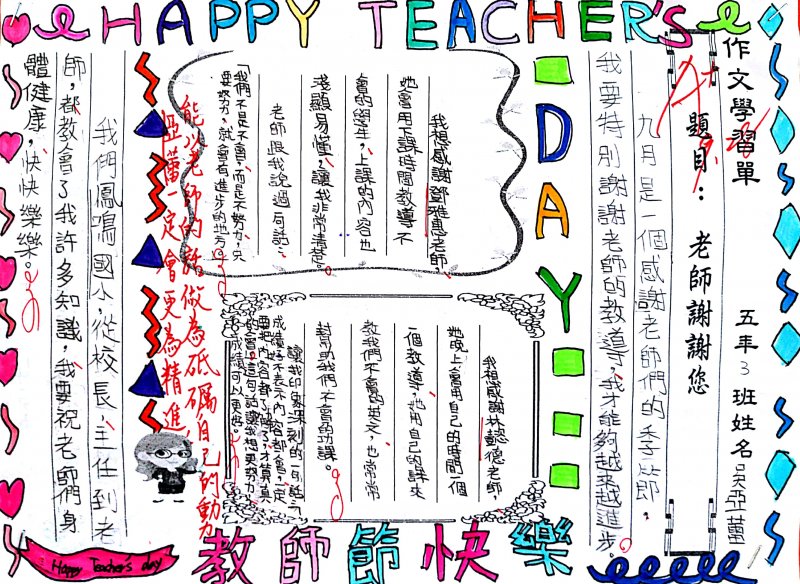 HAPPY TEACHER'S
DAY
作文學習單
題目：老師謝謝您
五年3班姓名吳亞蕾
九月是一個感謝老師們的季節，
我要特別謝謝老師的教導，我才能夠越來越進步。
我想感謝鄧雅惠老師，
她會用下課時間教導不
會的學生，上課的內容也
淺顯易懂，讓我非常清楚。
老師跟我說過一句話：
「我們不是不會，而是不努力，只
要努力，就會有進步的地方。
我想感謝林懿德老師
她晚上會用自己的時間一個
一個教導，她用自己的課來
教我們不會的英文，也常常
幫助我們不會的功課。
讓我印象深刻的一句話：
能以老師的話做為砥礪自己的動力
亞蕾一定會更為精進
我們鳳鳴國小，從校長，主任到老
師，都教會了我許多知識，我要祝老師們身
體健康，快快樂樂。
教師節快樂
Happy Teacher's day